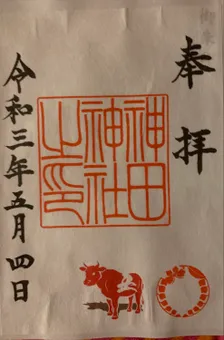 奉拝
神田
神社
之印
令和三年五月四日